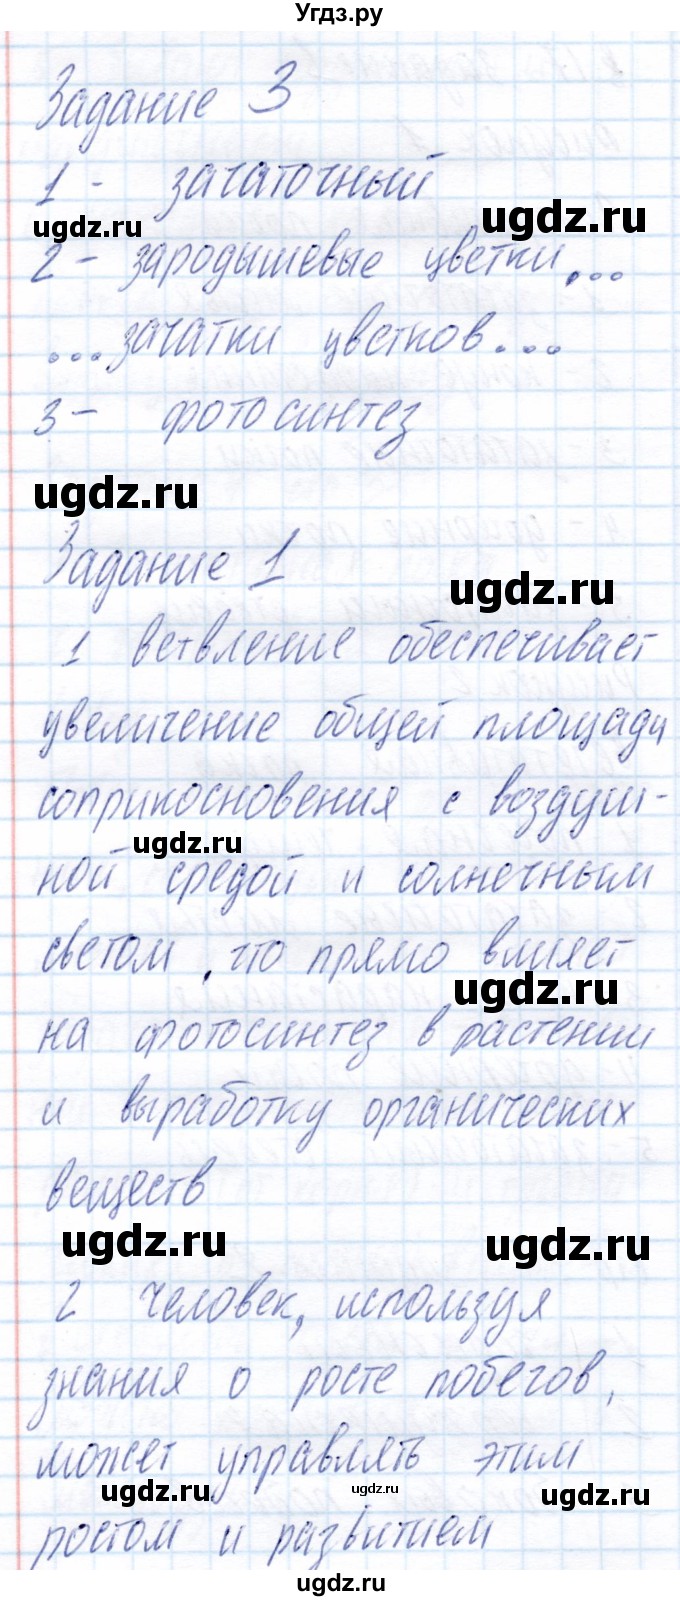 Угдз.ру
Задание 3
1 - зачаточный
ugdz.ru
ugdz.ru
2 - зародышевые цветки...
...зачатки цветков...
3 - фотосинтез
ugdz.ru
Задание 1
ugdz.ru
1 ветвление обеспечивает
увеличение общей площади
соприкосновения с воздуш-
ugdz.ru
ной средой и солнечным
светом, что прямо влияет
ugdz.ru
на фотосинтез в растении
и выработку органических
веществ
ugdz.ru
ugdz.ru
2 Человек, используя
знания о росте побегов,
может управлять этим
ugdz.ru
ugdz.ru
ugdz.ru
ростом и развитием
ugdz.ru